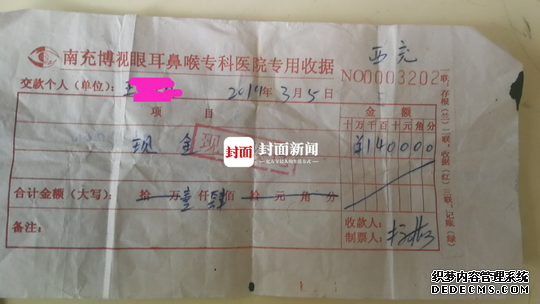 南充博视眼耳鼻喉专科医院专用收据
西充
NO0003202
交款个人(单位):王
2014年3月5日
项目
金额
十万千百十元角分
现金
现
¥140000
封面 封面新闻
合计金额(大写): 拾万壹仟肆佰拾元角分
备注:
收款人:
制票人:
一联:存根(兰)二联:收据(红)三联:记账(绿)
本站部分内容来源于网络